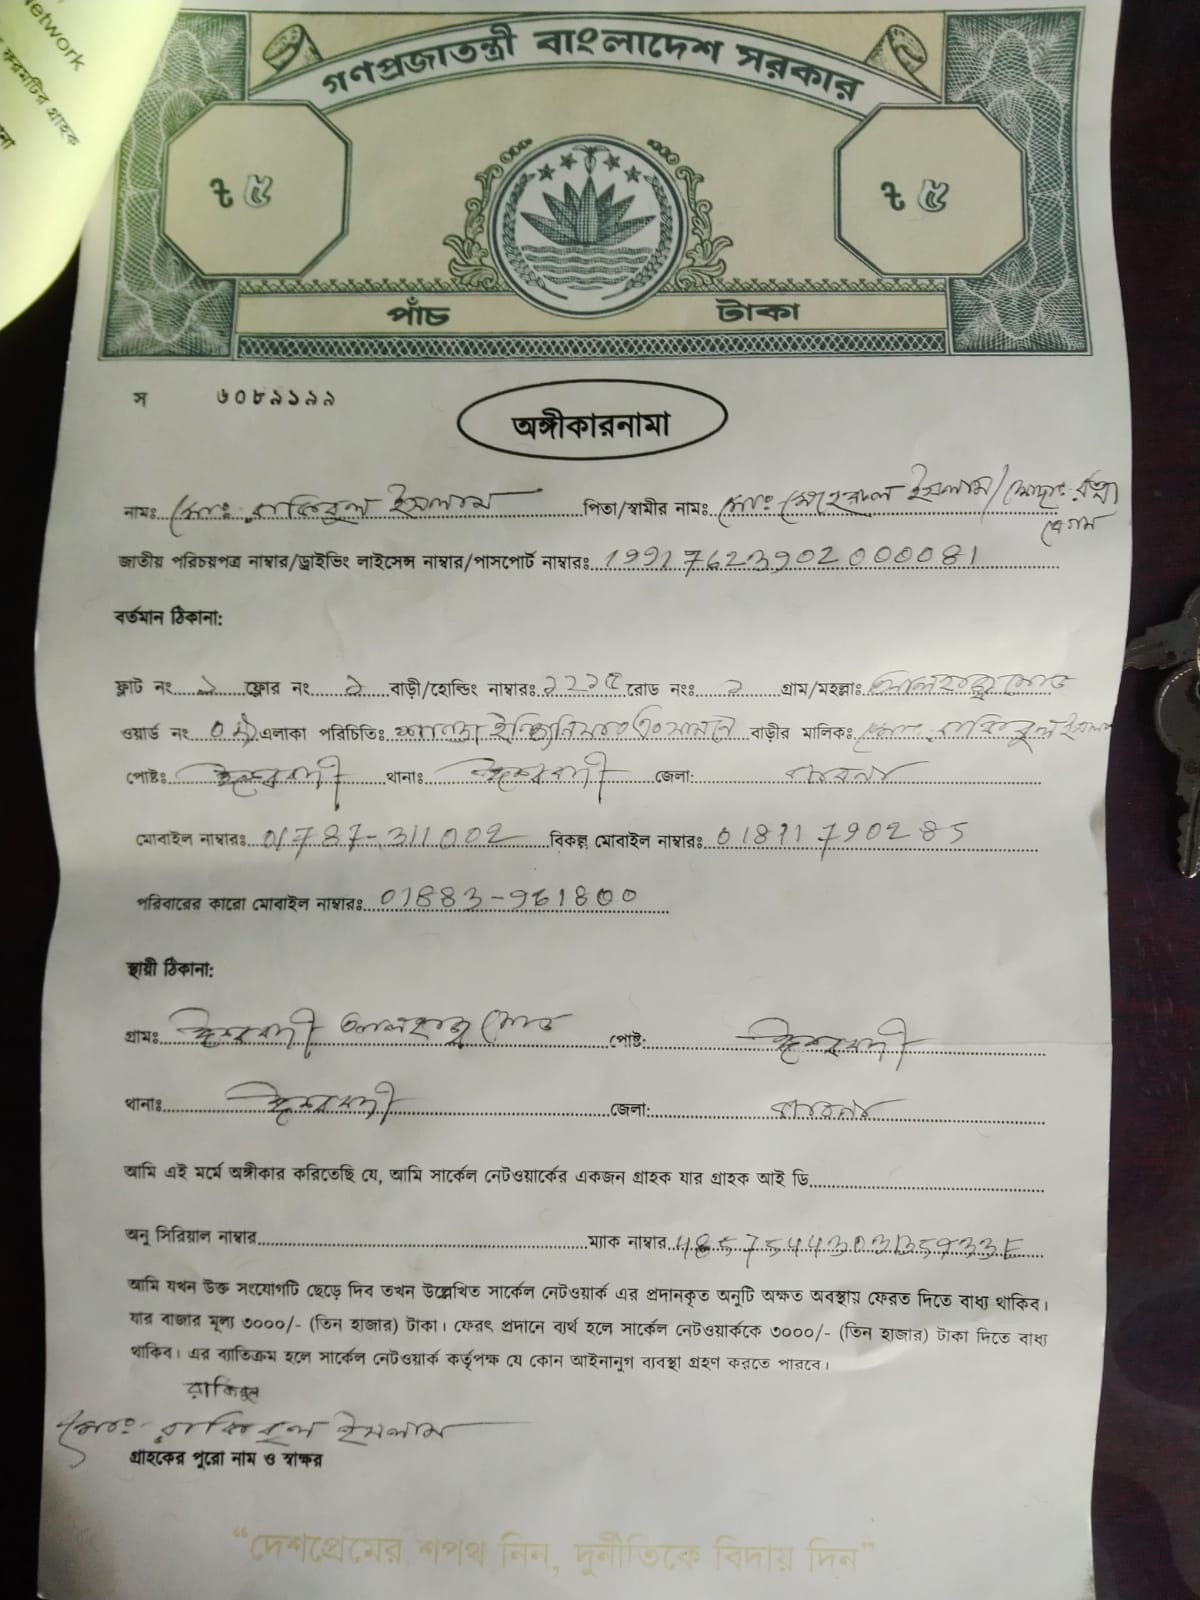 etwork
ফরমটির গ্রাহক
গণপ্রজাতন্ত্রী বাংলাদেশ সরকার
৳ ৫ ৳ ৫
পাঁচ টাকা
স ৬০৮৯১৯৯
অঙ্গীকারনামা
নামঃ মোঃ রাকিবুল ইসলাম পিতা/স্বামীর নামঃ মোঃ মেহেরুল ইসলাম/মোছাঃ রত্না
বেগম
জাতীয় পরিচয়পত্র নাম্বার/ড্রাইভিং লাইসেন্স নাম্বার/পাসপোর্ট নাম্বারঃ 19917623902000081
বর্তমান ঠিকানা:
ফ্লাট নং ১ ফ্লোর নং ১ বাড়ী/হোল্ডিং নাম্বারঃ রোড নংঃ ১ গ্রাম/মহল্লাঃ আলহাজ্ব মোড়
ওয়ার্ড নং এলাকা পরিচিতিঃ বাড়ীর মালিকঃ মোঃ রাকিবুল ইসলাম
পোষ্টঃ ঈশ্বরদী থানাঃ ঈশ্বরদী জেলা: পাবনা
মোবাইল নাম্বারঃ 01787-311002 বিকল্প মোবাইল নাম্বারঃ 01871790285
পরিবারের কারো মোবাইল নাম্বারঃ 01883-961800
স্থায়ী ঠিকানা:
গ্রামঃ ঈশ্বরদী আলহাজ্ব মোড় পোষ্ট: ঈশ্বরদী
থানাঃ ঈশ্বরদী জেলা: পাবনা
আমি এই মর্মে অঙ্গীকার করিতেছি যে, আমি সার্কেল নেটওয়ার্কের একজন গ্রাহক যার গ্রাহক আই ডি
অনু সিরিয়াল নাম্বার ম্যাক নাম্বার 485754430313593 3E
আমি যখন উক্ত সংযোগটি ছেড়ে দিব তখন উল্লেখিত সার্কেল নেটওয়ার্ক এর প্রদানকৃত অনুটি অক্ষত অবস্থায় ফেরত দিতে বাধ্য থাকিব।
যার বাজার মূল্য ৩০০০/- (তিন হাজার) টাকা। ফেরৎ প্রদানে ব্যর্থ হলে সার্কেল নেটওয়ার্ককে ৩০০০/- (তিন হাজার) টাকা দিতে বাধ্য
থাকিব। এর ব্যাতিক্রম হলে সার্কেল নেটওয়ার্ক কর্তৃপক্ষ যে কোন আইনানুগ ব্যবস্থা গ্রহণ করতে পারবে।
রাকিবুল
মোঃ রাকিবুল ইসলাম
গ্রাহকের পুরো নাম ও স্বাক্ষর
“দেশপ্রেমের শপথ নিন, দুর্নীতিকে বিদায় দিন”